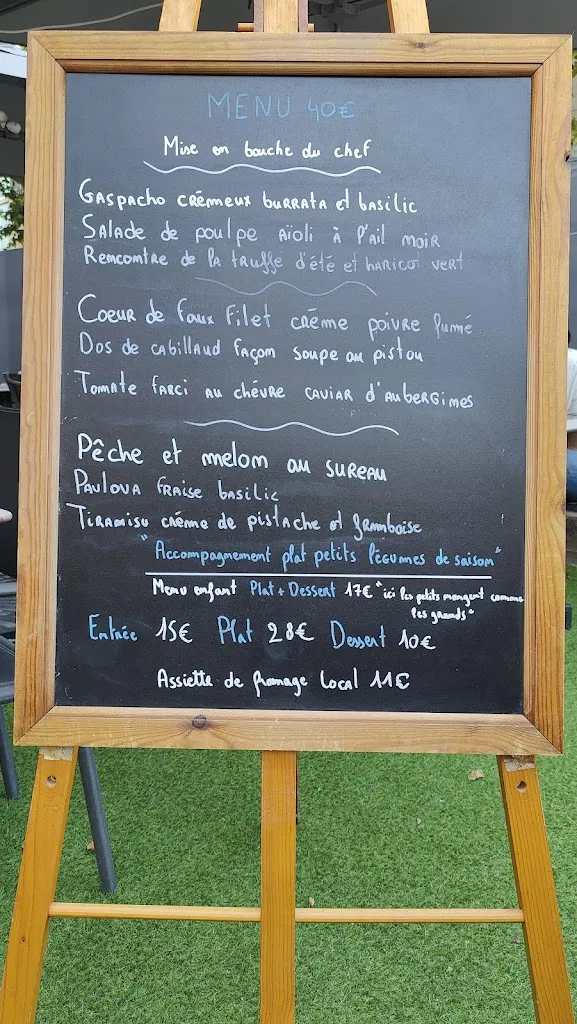 MENU 40€
Mise en bouche du chef
Gaspacho crémeux burrata et basilic
Salade de poulpe aïoli à l'ail noir
Rencontre de la truffe d'été et haricot vert
Coeur de faux filet crème poivre fumé
Dos de cabillaud façon soupe au pistou
Tomate farci au chèvre caviar d'aubergines
Pêche et melon au sureau
Pavlova fraise basilic
Tiramisu crème de pistache et framboise
"Accompagnement plat petits légumes de saison"
Menu enfant Plat + Dessert 17€ "ici les petits mangent comme
les grands"
Entrée 15€ Plat 28€ Dessert 10€
Assiette de fromage local 11€